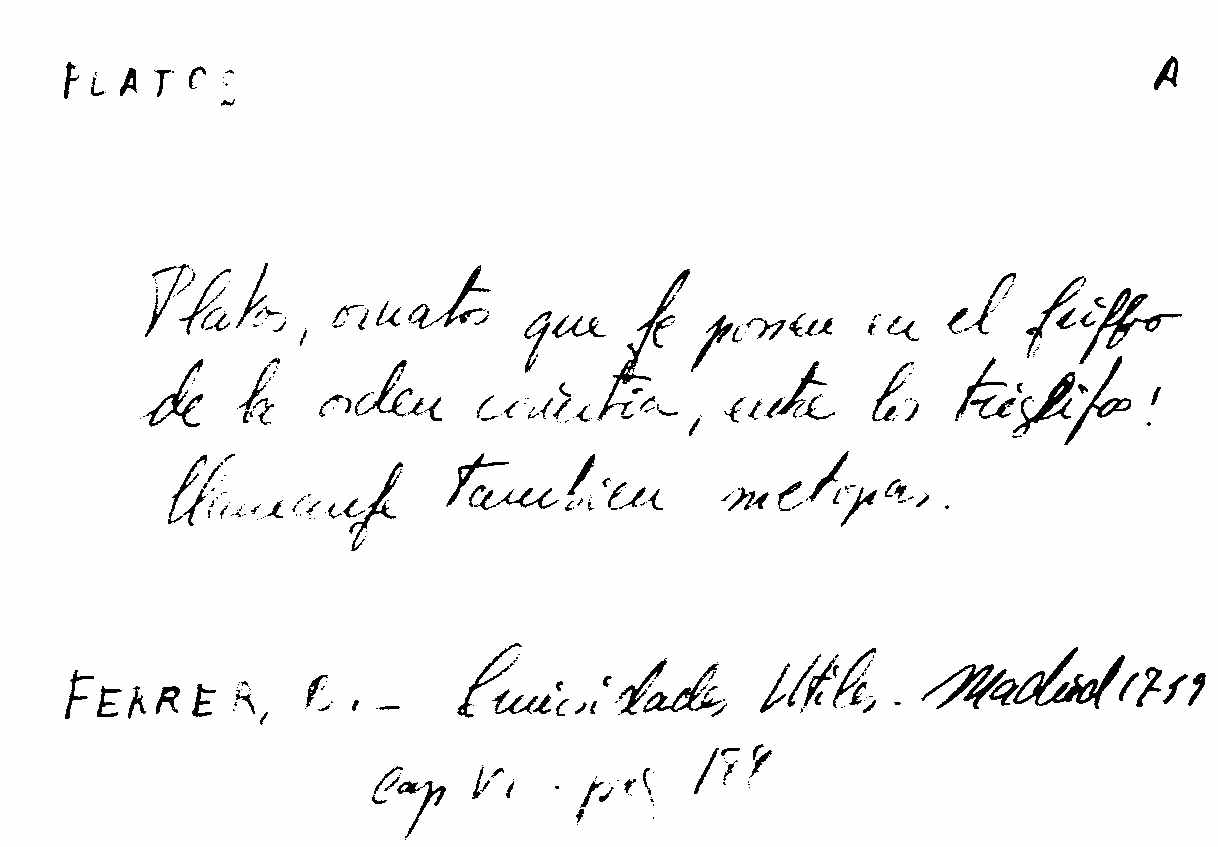 PLATOS A
Platos, ornatos que ſe ponen en el friſſo
de la orden corintia, entre los triglifos!
llamanſe tambien metopas.
FERRER, B.- Curiosidades Utiles. Madrid 1759
Cap VI. pag